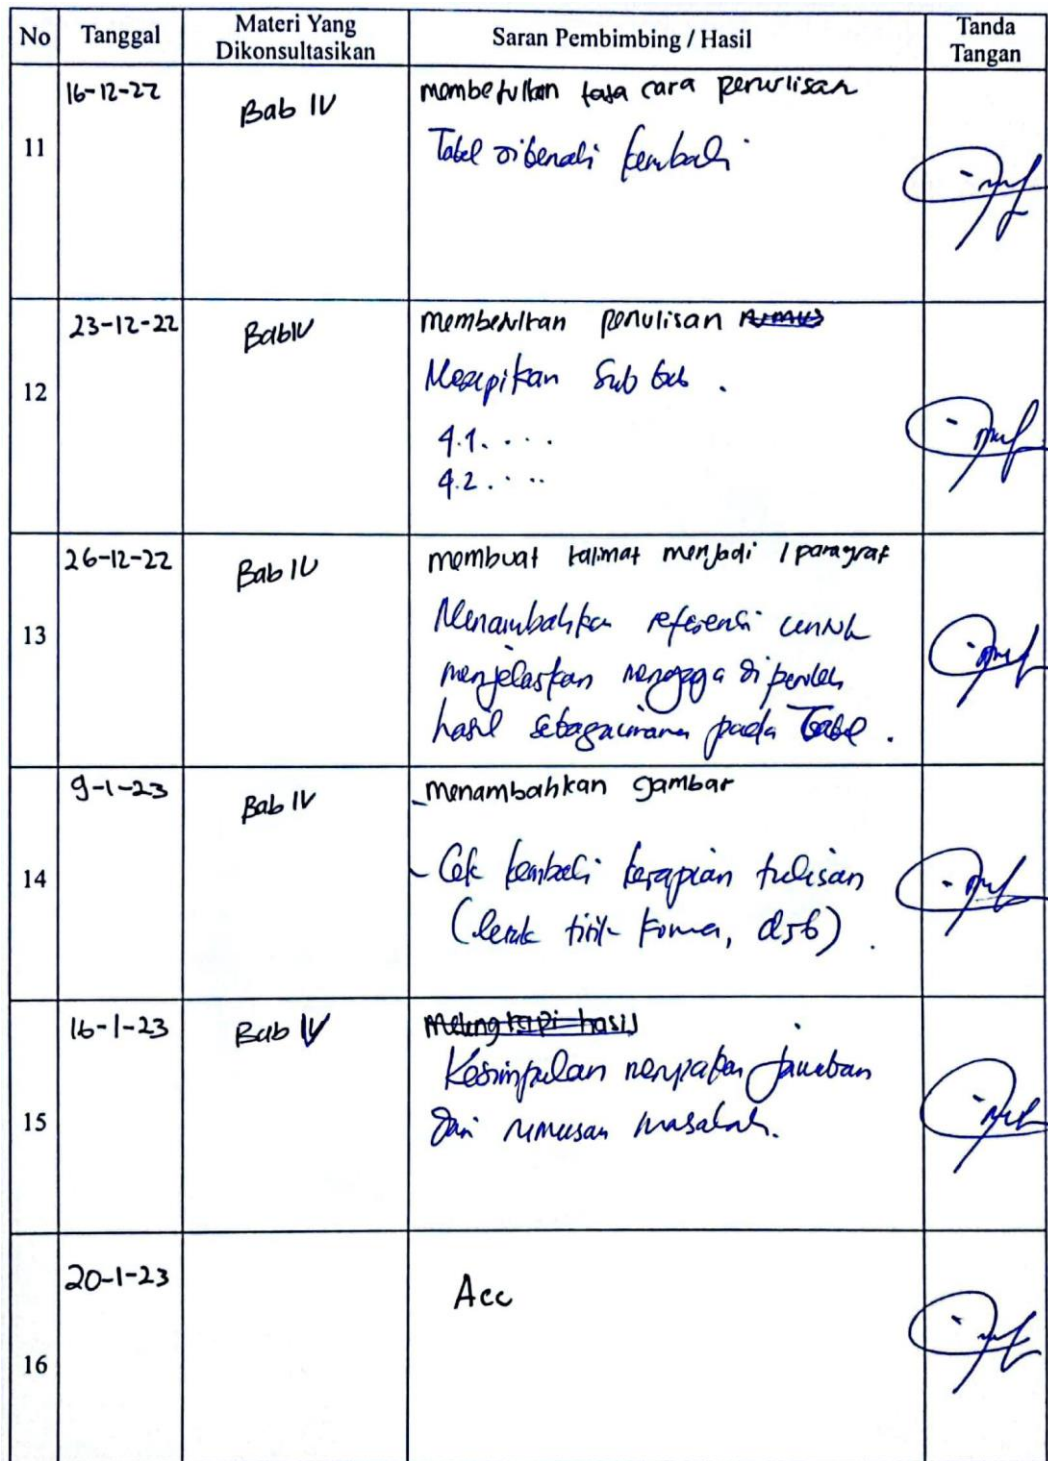 No Tanggal Materi Yang Dikonsultasikan Saran Pembimbing / Hasil Tanda Tangan
11 16-12-22 Bab IV membetulkan tata cara penulisan
Tabel dibenahi kembali
12 23-12-22 Bab IV membetulkan penulisan rumus
Merapikan Sub bab .
4.1. . . .
4.2. . . .
13 26-12-22 Bab IV membuat kalimat menjadi 1 paragraf
Menambahkan referensi untuk
menjelaskan mengapa diperoleh
hasil sebagaimana pada Tabel .
14 9-1-23 Bab IV - menambahkan gambar
- Cek kembali kerapian tulisan
(letak titik koma, dsb) .
15 16-1-23 Bab V melengkapi hasil
Kesimpulan merupakan jawaban
dari rumusan masalah.
16 20-1-23 Acc